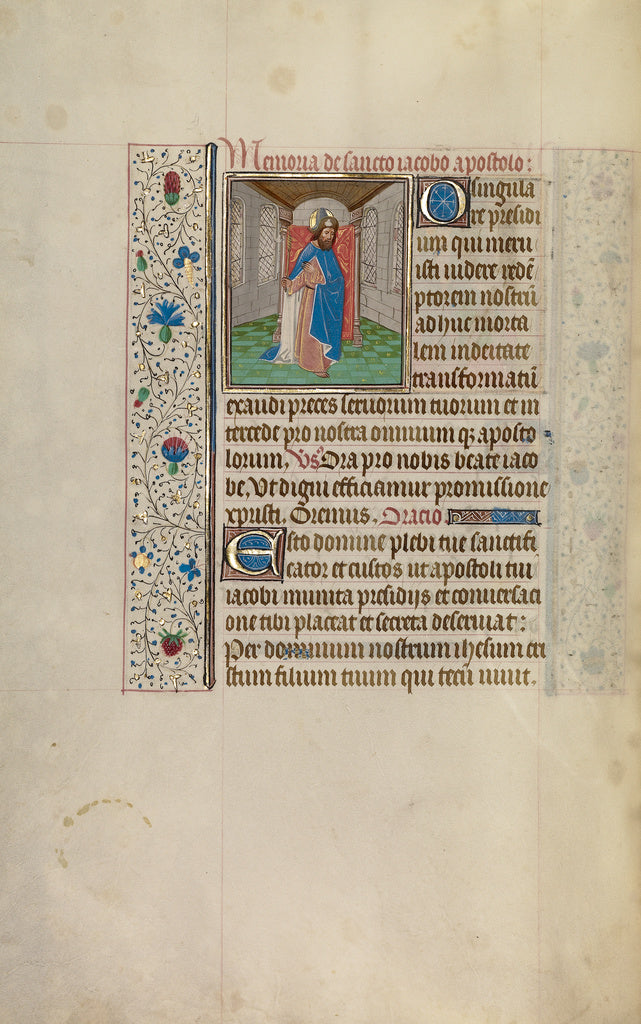 Memoria de sancto iacobo apostolo:
O singula
re presidi
um qui meru
isti uidere redē
ptorem nostrū
adhuc morta
lem indeitate
transformatū
exaudi preces seruorum tuorum et in
tercede pro nostra omnium qz aposto
lorum. Vs Ora pro nobis beate iaco
be, Vt digni efficiamur promissione
xpristi. Oremus. Oracio
Esto domine plebi tue sanctifi
cator et custos ut apostoli tui
iacobi munita presidijs et conuersaci
one tibi placeat et secreta deseruiat:
Per dominum nostrum ihesum cri
stum filium tuum qui tecū uiuit.